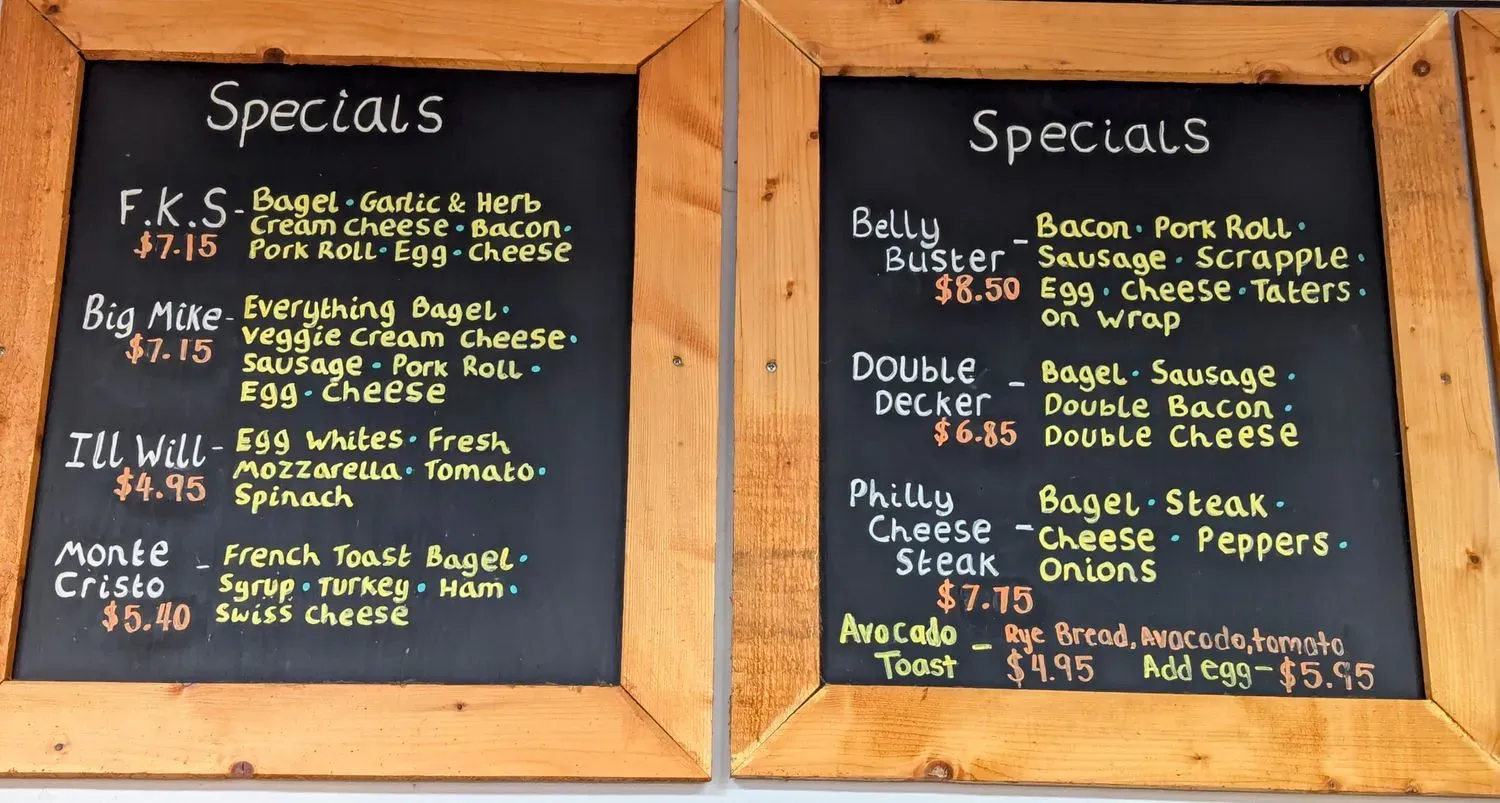 Specials
F.K.S - Bagel · Garlic & Herb
Cream Cheese · Bacon ·
$7.15 Pork Roll · Egg · Cheese
Big Mike - Everything Bagel ·
Veggie Cream Cheese ·
$7.15 Sausage · Pork Roll ·
Egg · Cheese
Ill Will - Egg Whites · Fresh
Mozzarella · Tomato ·
$4.95 Spinach
Monte - French Toast Bagel ·
Cristo Syrup · Turkey · Ham ·
$5.40 Swiss Cheese
Specials
Belly - Bacon · Pork Roll ·
Buster Sausage · Scrapple ·
$8.50 Egg · Cheese · Taters ·
on Wrap
Double - Bagel · Sausage ·
Decker Double Bacon ·
$6.85 Double Cheese
Philly Bagel · Steak ·
Cheese - Cheese · Peppers ·
Steak Onions
$7.75
Avocado - Rye Bread, Avacodo, tomato
Toast $4.95 Add egg - $5.95